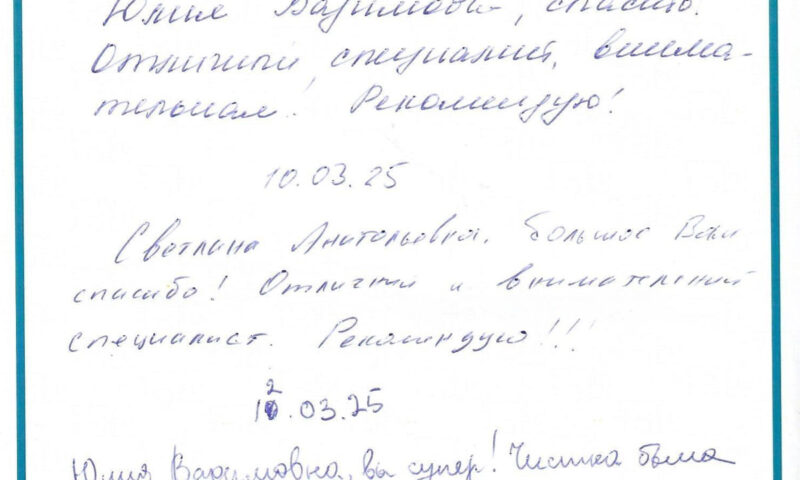 Юлия Вадимовна, спасибо.
Отличный специалист, внима-
тельная! Рекомендую!
10.03.25
Светлана Анатольевна, большое Вам
спасибо! Отличный и внимательный
специалист. Рекомендую!!!
12.03.25
Юлия Вадимовна, вы супер! Чистка была